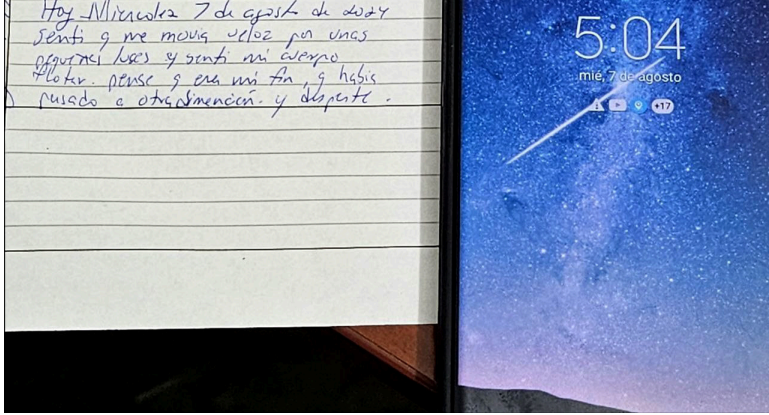 Hoy Miercoles 7 de agosto de 2024
senti q me movia veloz por unas
pequeñas luces y senti mi cuerpo
flotar. pense q era mi fin, q habia
pasado a otra dimención. y desperte.
5:04
mié, 7 de agosto
+17